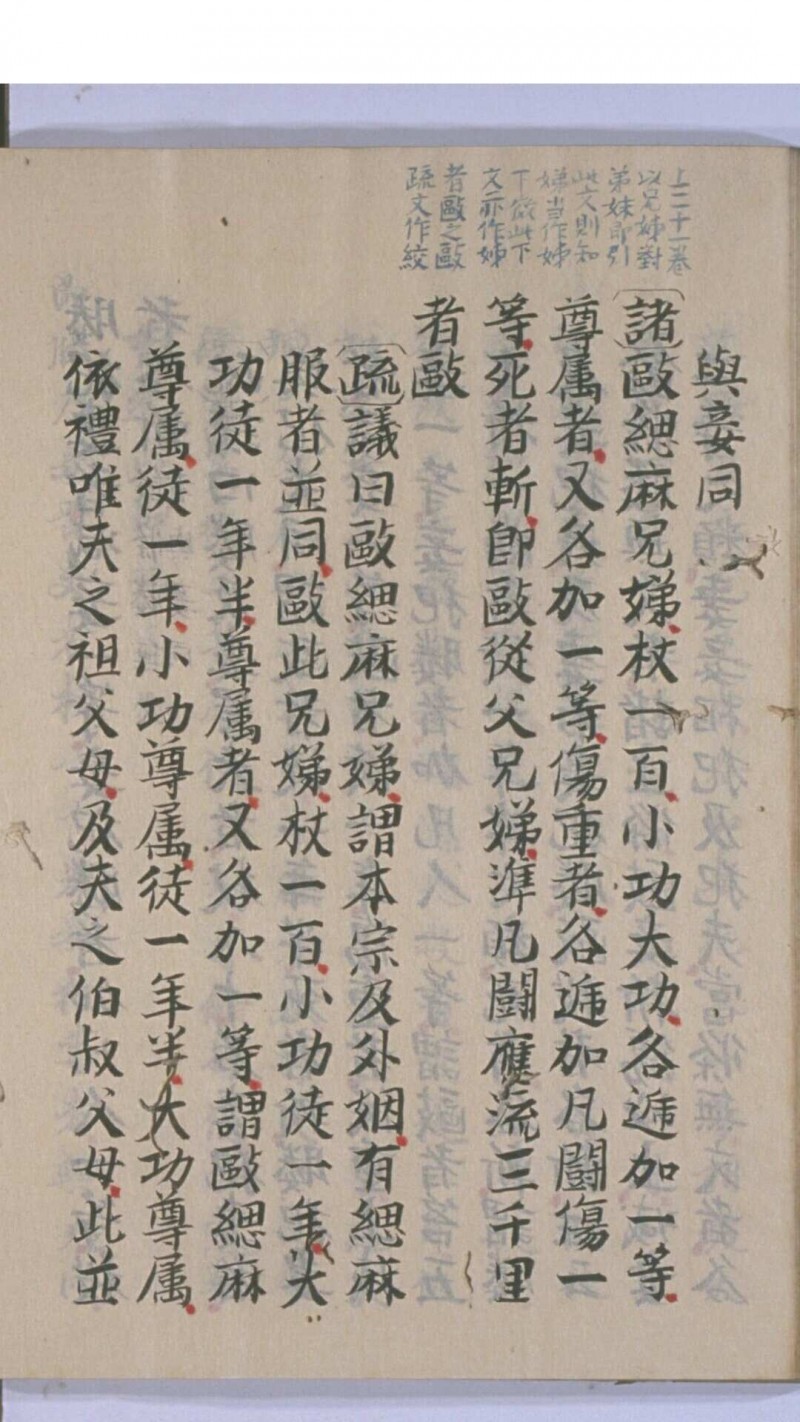 上二十一卷
以兄姊對
弟妹即引
此文則知
娣當作姊
下倣此下
文亦作姊
者毆之毆
疏文作絞
與妾同
諸毆緦麻兄娣杖一百小功大功各遞加一等
尊属者又各加一等傷重者各遞加凡鬪傷一
等死者斬即毆從父兄娣準凡鬪應流三千里
者毆
疏議曰毆緦麻兄娣謂本宗及外姻有緦麻
服者並同毆此兄娣杖一百小功徒一年大
功徒一年半尊属者又各加一等謂毆緦麻
尊属徒一年小功尊属徒一年半大功尊属
依禮唯夫之祖父母及夫之伯叔父母此並